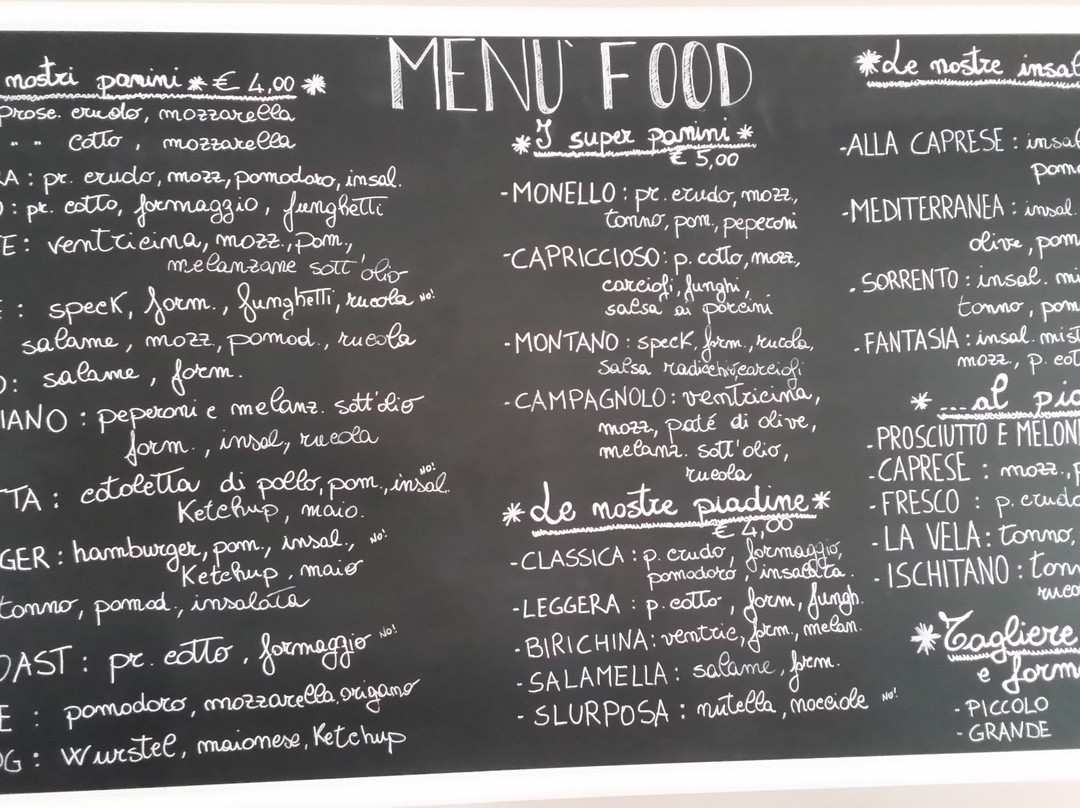 MENU' FOOD
nostri panini * € 4,00 *
prose. crudo, mozzarella
" " cotto, mozzarella
RA: pr. crudo, mozz, pomodoro, insal.
O: pr. cotto, formaggio, funghetti
E: ventricina, mozz., pom.,
melanzane sott'olio
E: speck, form., funghetti, rucola NO!
salame, mozz, pomod., rucola
O: salame, form.
IANO: peperoni e melanz. sott'olio
form., insal, rucola
TA: cotoletta di pollo, pom., insal. NO!
Ketchup, maio.
GER: hamburger, pom., insal., NO!
Ketchup, maio
tonno, pomod., insalata
OAST: pr. cotto, formaggio NO!
E: pomodoro, mozzarella, origano
OG: Wurstel, maionese, Ketchup
* I super panini *
€ 5,00
- MONELLO: pr. crudo, mozz,
tonno, pom, peperoni
- CAPRICCIOSO: p. cotto, mozz,
carciofi, funghi,
salsa ai porcini
- MONTANO: speck, form., rucola,
salsa radicchio, carciofi
- CAMPAGNOLO: ventricina,
mozz, paté di olive,
melanz. sott'olio,
rucola
* Le nostre piadine *
€ 4,00
- CLASSICA: p. crudo, formaggio,
pomodoro, insalata.
- LEGGERA: p. cotto, form, fungh.
- BIRICHINA: ventric, form., melan.
- SALAMELLA: salame, form.
- SLURPOSA: nutella, nocciole NO!
* Le nostre insal
- ALLA CAPRESE: insal
pomo
- MEDITERRANEA: insal.
olive, pom
. SORRENTO: insal. mi
tonno, pom
. FANTASIA: insal. mist
mozz, p. cot
* ...al pia
- PROSCIUTTO E MELON
- CAPRESE: mozz., p
- FRESCO: p. crudo
- LA VELA: tonno,
- ISCHITANO: tonn
ruco
* Tagliere
e form
- PICCOLO
- GRANDE